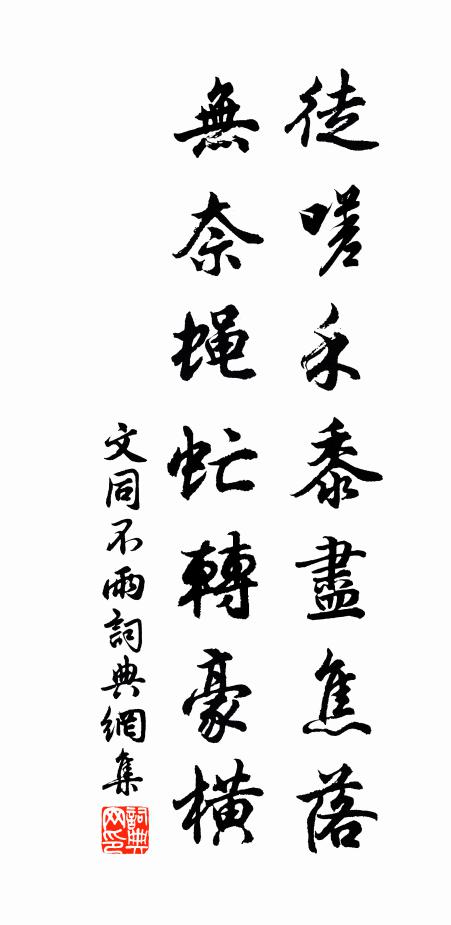 徒嗟禾黍盡焦落
無奈蝇虻轉豪橫
文同不雨詞典網集
詞典网印